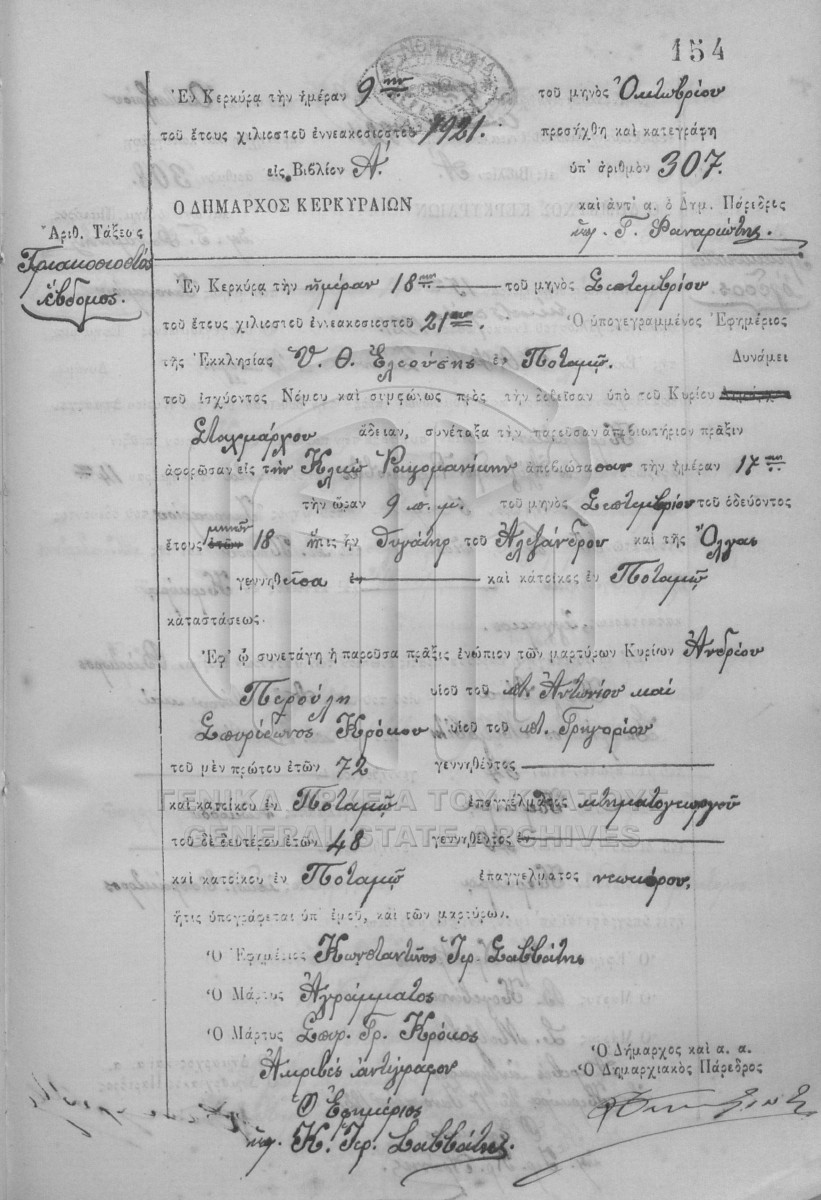 154
Ἐν Κερκύρᾳ τὴν ἡμέραν 9ην τοῦ μηνὸς Ὀκτωβρίου
τοῦ ἔτους χιλιοστοῦ ἐννεακοσιοστοῦ 1921. προσήχθη καὶ κατεγράφη
εἰς Βιβλίον Α΄. ὑπ' ἀριθμὸν 307.
Ο ΔΗΜΑΡΧΟΣ ΚΕΡΚΥΡΑΙΩΝ καὶ ἀντ' α. ὁ Δημ. Πάρεδρος
Γ. Φαναριώτης.
Ἀριθ. Τάξεως
Τριακοσιοστὸς
ἕβδομος.
Ἐν Κερκύρᾳ τὴν ἡμέραν 18ην τοῦ μηνὸς Σεπτεμβρίου
τοῦ ἔτους χιλιοστοῦ ἐννεακοσιοστοῦ 21ου. Ὁ ὑπογεγραμμένος Ἐφημέριος
τῆς Ἐκκλησίας Ὑ. Θ. Ἐλεούσης ἐν Ποταμῷ. Δυνάμει
τοῦ ἰσχύοντος Νόμου καὶ συμφώνως πρὸς τὴν δοθεῖσαν ὑπὸ τοῦ Κυρίου
Σταχμάρχου ἄδειαν, συνέταξα τὴν παροῦσαν ἀποβιωτήριον πρᾶξιν
ἀφορῶσαν εἰς τὴν ἀποβιώσασαν τὴν ἡμέραν 17ην
τὴν ὥραν 9 π. μ. τοῦ μηνὸς Σεπτεμβρίου τοῦ ὁδεύοντος
ἔτους ἐτῶν μηνῶν 18 ἥτις ἦν θυγάτηρ τοῦ Ἀλεξάνδρου καὶ τῆς Ὄλγας
γεννηθεῖσα ἐν καὶ κάτοικος ἐν Ποταμῷ
καταστάσεως.
Ἐφ' ᾧ συνετάγη ἡ παροῦσα πρᾶξις ἐνώπιον τῶν μαρτύρων Κυρίων Ἀνδρέου
Περούλη υἱοῦ τοῦ ποτ. Ἀντωνίου καὶ
Σπυρίδωνος Κρόκου υἱοῦ τοῦ ποτ. Γρηγορίου
τοῦ μὲν πρώτου ἐτῶν 72 γεννηθέντος
καὶ κατοίκου ἐν Ποταμῷ ἐπαγγέλματος κτηματογεωργοῦ
τοῦ δὲ δευτέρου ἐτῶν 48 γεννηθέντος ἐν
καὶ κατοίκου ἐν Ποταμῷ ἐπαγγέλματος νεωκόρου,
ἥτις ὑπογράφεται ὑπ' ἐμοῦ, καὶ τῶν μαρτύρων.
Ὁ Ἐφημέριος Κωνσταντῖνος Ἱερ. Σαββάτης
Ὁ Μάρτυς Ἀγράμματος
Ὁ Μάρτυς Σπυρ. Γρ. Κρόκος
Ἀκριβὲς ἀντίγραφον
Ὁ Ἐφημέριος
Κ. Ἱερ. Σαββάτης.
Ὁ Δήμαρχος καὶ α. α.
Ὁ Δημαρχιακὸς Πάρεδρος
ΓΕΝΙΚΑ ΑΡΧΕΙΑ ΤΟΥ ΚΡΑΤΟΥΣ
GENERAL STATE ARCHIVES